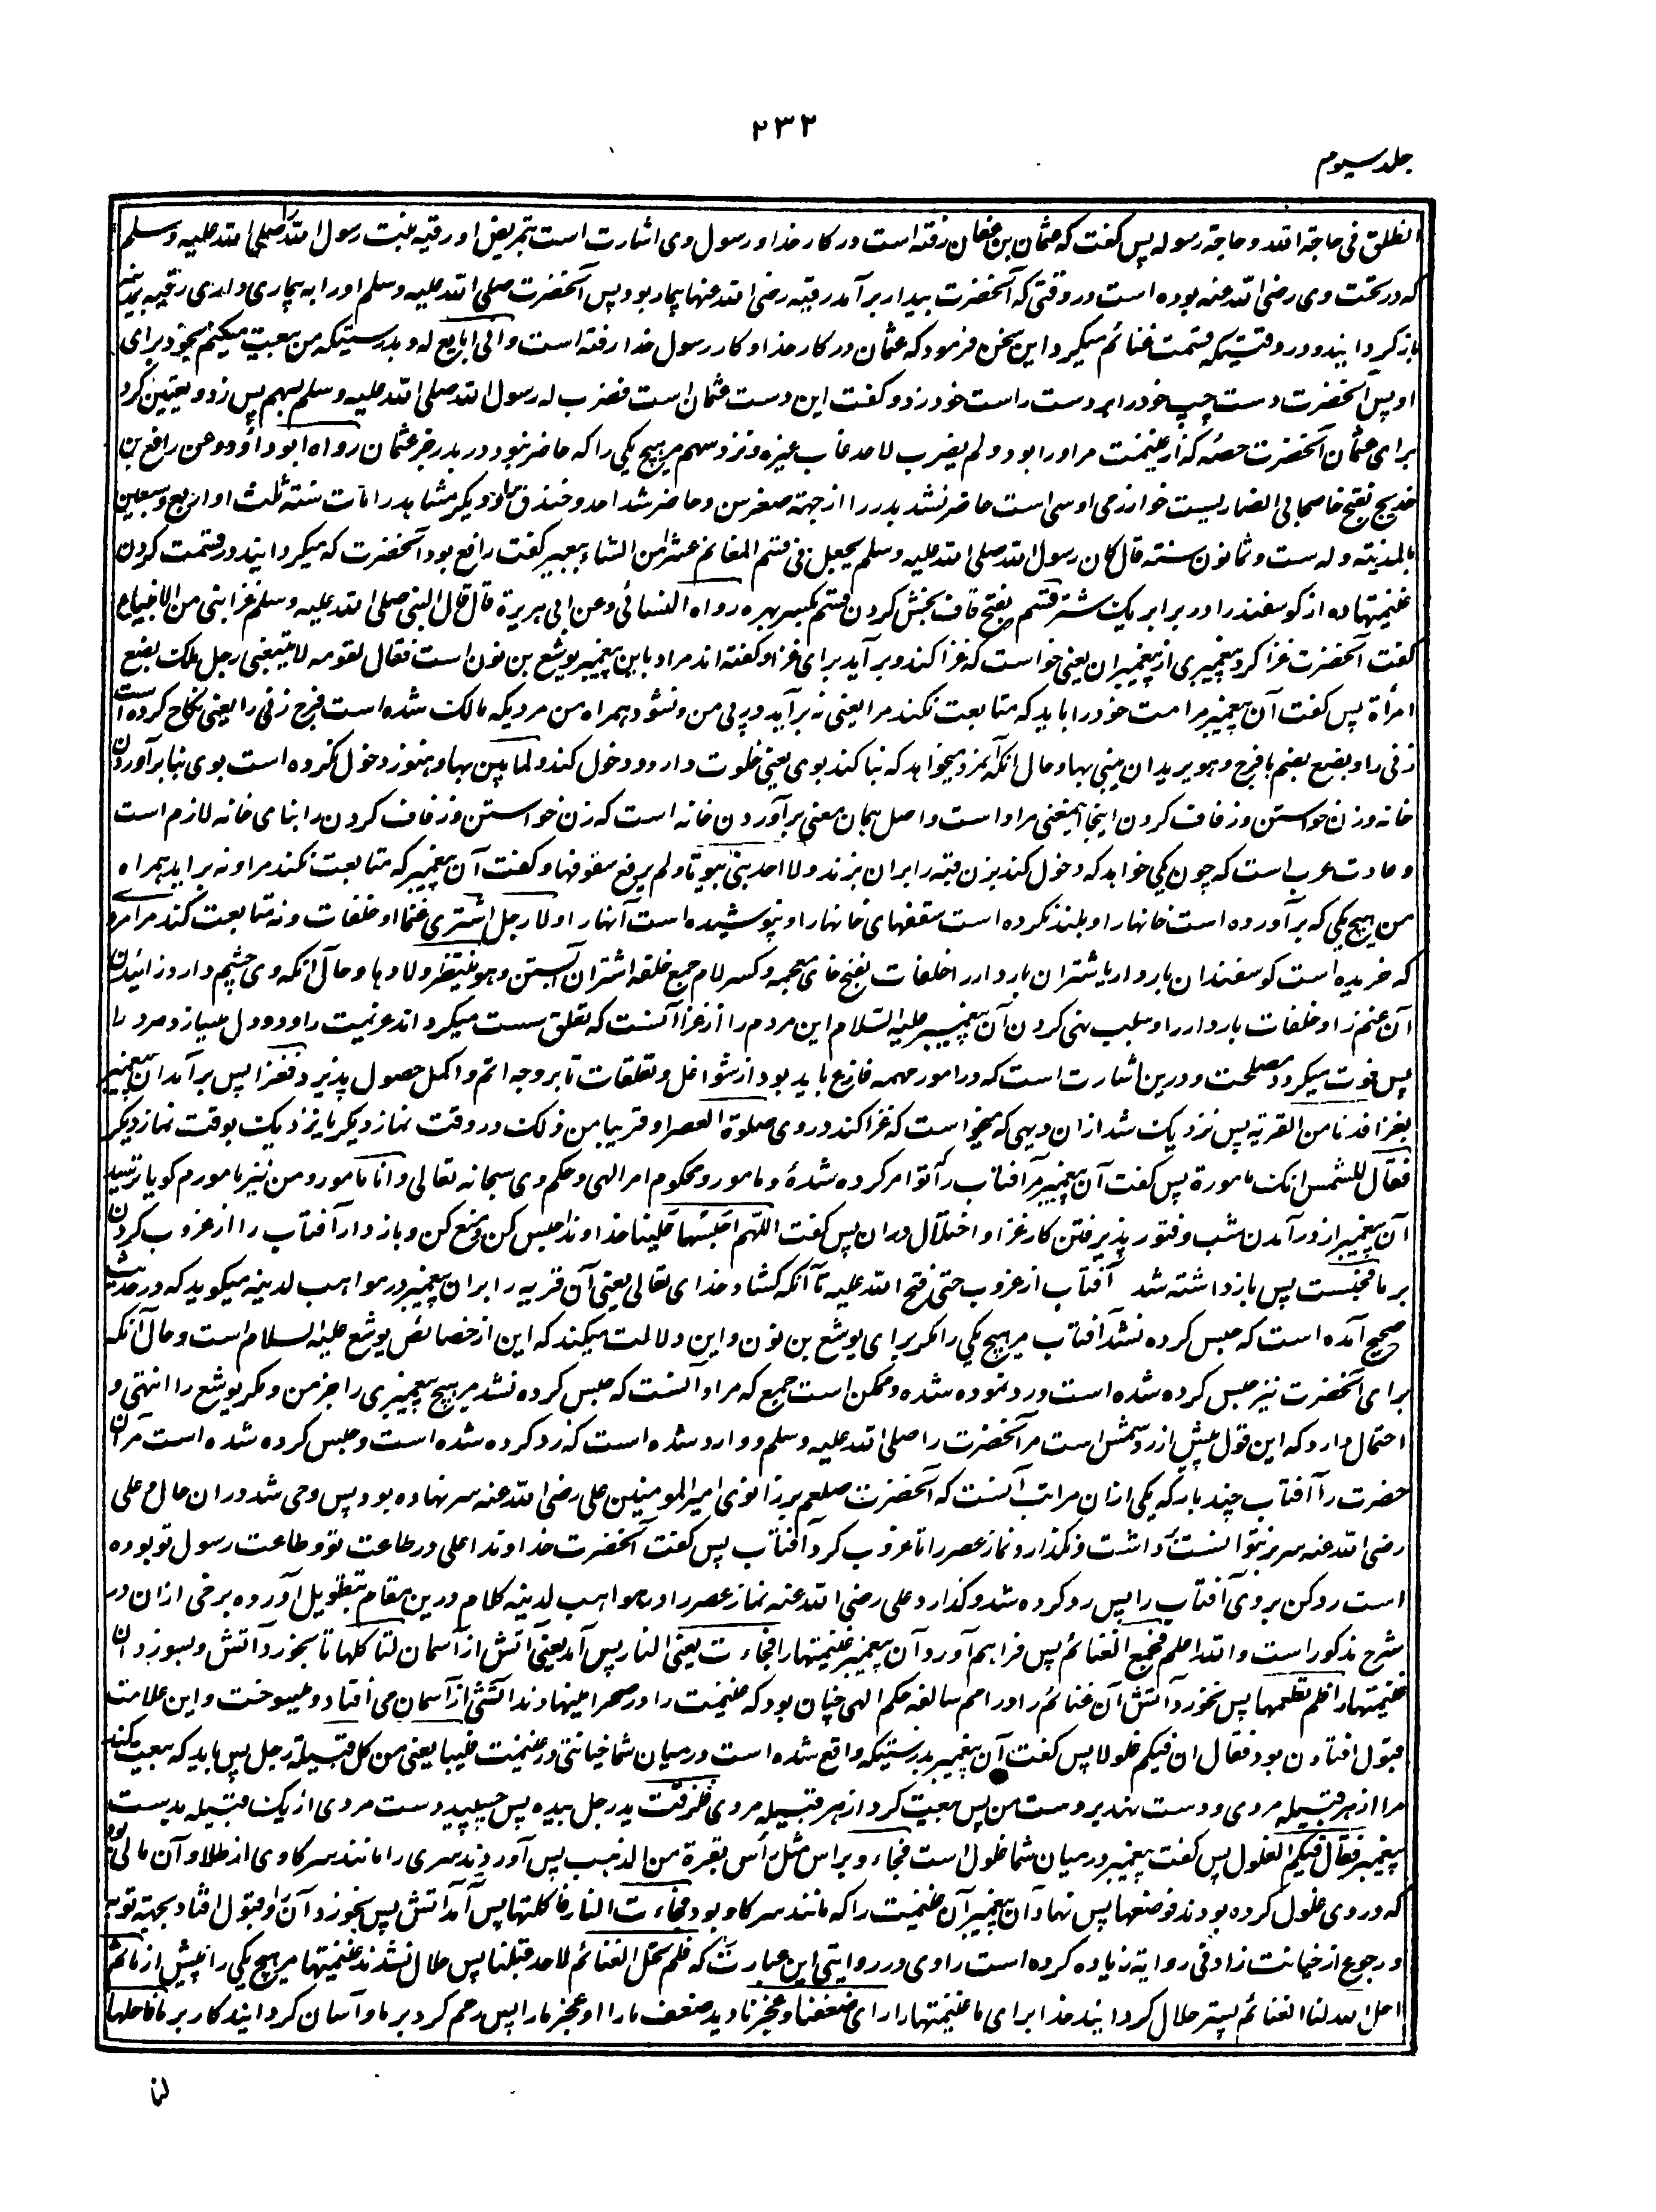 ۲۳۲
جلد سیوم
انطلق فی حاجة الله و حاجة رسوله پس گفت که عثمان بن عفان رفته است در کار خدا و رسول وی اشارت است بتمریض او رقیه بنت رسول الله صلی الله علیه وسلم
که در تحت وی رضی الله عنه بوده است در وقتی که آنحضرت بیدار برآمد رقیه رضی الله عنها بیمار بود پس آنحضرت صلی الله علیه وسلم او را به بیماری داری رقیه بمدینه
باز گردانید و در وقتیکه قسمت غنائم میکرد این سخن فرمود که عثمان در کار خدا و کار رسول خدا رفته است وانی ابایع له و بدرستیکه من بیعت میکنم بخود برای
او پس آنحضرت دست چپ خود را بر دست راست خود زد و گفت این دست عثمان است فضرب له رسول الله صلی الله علیه وسلم بسهم پس زد و تعیین کرد
برای عثمان آنحضرت حصه که از غنیمت مر او را بود ولم یضرب لاحد غاب غیره و نزد سهم مر هیچ یکی را که حاضر نبود در بدر جز عثمان رواه ابو داؤد وعن رافع بن
خدیج بفتح خا صحابی انصاریست خوارزمی اوسی است حاضر نشد بدر را از جهة صغر سن و حاضر شد احد و خندق را و دیگر مشاهد را مات سنة ثلث او اربع وسبعین
بالمدینة وله ست وثمانون سنة قال کان رسول الله صلی الله علیه وسلم یجعل فی قسم المغانم عشرا من الشاء ببعیر گفت رافع بود آنحضرت که میگردانید در قسمت کردن
غنیمتها ده از گوسفند را در برابر یک شتر قسم بفتح قاف بخش کردن قسم بکسر بهره رواه النسائی وعن ابی هریرة قال قال النبی صلی الله علیه وسلم غزا نبی من الانبیاء
گفت آنحضرت غزا کرد پیغمبری از پیغمبران یعنی خواست که غزا کند و برآید برای غزا و گفته اند مراد باین پیغمبر یوشع بن نون است فقال لقومه لا یتبعنی رجل ملک بضع
امرأة پس گفت آن پیغمبر مر امت خود را باید که متابعت نکند مرا یعنی نه برآید در پی من و نشود همراه من مردیکه مالک شده است فرج زنی را یعنی نکاح کرده است
زنی را و بضع بضم با فرج وهو یرید ان یبنی بها و حال آنکه آنمرد میخواهد که بنا کند بوی یعنی خلوت دارد و دخول کند ولما یبن بها و هنوز دخول نکرده است بوی بنا برآوردن
خانه و زن خواستن و زفاف کردن اینجا اینمعنی مراد است و اصل همان معنی برآوردن خانه است که زن خواستن و زفاف کردن را بنای خانه لازم است
و عادت عرب است که چون یکی خواهد که دخول کند بزن قبه را بران بزند ولا احد بنی بیوتا ولم یرفع سقوفها و گفت آن پیغمبر که متابعت نکند مرا و نه برآید همراه
من هیچ یکی که برآورده است خانها را و بلند نکرده است سقفهای خانها را و نپوشیده است آنها را ولا رجل اشتری غنما او خلفات و نه متابعت کند مرا مردی
که خریده است گوسفندان باردار یا شتران باردار را خلفات بفتح خای معجمه و کسر لام جمع خلفه اشتران آبستن وهو ینتظر ولادها و حال آنکه وی چشم دارد زائیدن
آن غنم را و خلفات باردار را و سبب نهی کردن آن پیغمبر علیه السلام این مردم را از غزا آنست که تعلق سست میگرداند عزیمت را و دودل میسازد مرد را
پس فوت میگردد مصلحت و درین اشارت است که در امور مهمه فارغ باید بود از شواغل و تعلقات تا بر وجه اتم و اکمل حصول پذیرد فغزا پس برآمد ان پیغمبر
بغزا فدنا من القریة پس نزدیک شد ازان دیهی که میخواست که غزا کند در وی صلوة العصر او قریبا من ذلک در وقت نماز دیگر یا نزدیک بوقت نماز دیگر
فقال للشمس انک مامورة پس گفت آن پیغمبر مر آفتاب را تو امر کرده شدهٔ و مامور و محکوم امر الهی و حکم وی سبحانه تعالی وانا مامور و من نیز مامورم گویا ترسید
آن پیغمبر از درآمدن شب و فتور پذیرفتن کار غزا و اختلال دران پس گفت اللهم احبسها علینا خداوندا حبس کن و منع کن و باز دار آفتاب را از غروب کردن
بر ما فحبست پس بازداشته شد آفتاب از غروب حتی فتح الله علیه تا آنکه کشاد خدای تعالی یعنی آن قریه را بران پیغمبر در مواهب لدنیه میگوید که در حدیث
صحیح آمده است که حبس کرده نشد آفتاب مر هیچ یکی را مگر برای یوشع بن نون و این دلالت میکند که این از خصائص یوشع علیه السلام است و حال آنکه
برای آنحضرت نیز حبس کرده شده است و رد نموده شده و ممکن است جمع که مراد آنست که حبس کرده نشد مر هیچ پیغمبری را جز من و مگر یوشع را انتهی و
احتمال دارد که این قول پیش از رد شمس است مر آنحضرت را صلی الله علیه وسلم و وارد شده است که رد کرده شده است و حبس کرده شده است مر آن
حضرت را آفتاب چند بار که یکی ازان مراتب آنست که آنحضرت صلعم بر زانوی امیر المومنین علی رضی الله عنه سر نهاده بود پس وحی شد دران حال و علی
رضی الله عنه سر نتوانست داشت و نگذارد نماز عصر را تا غروب کرد آفتاب پس گفت آنحضرت خداوندا علی در طاعت تو و طاعت رسول تو بوده
است رد کن بر وی آفتاب را پس رد کرده شد و گذارد علی رضی الله عنه نماز عصر را در مواهب لدنیه کلام درین مقام بتطویل آورده برخی ازان در
شرح مذکور است والله اعلم فجمع الغنائم پس فراهم آورد آن پیغمبر غنیمتها را فجاءت یعنی النار پس آمد یعنی آتش از آسمان لتاکلها تا بخورد آتش و بسوزد آن
غنیمتها را فلم تطعمها پس نخورد آتش آن غنائم را و در امم سالفه حکم الهی چنان بود که غنیمت را در صحرا مینهادند آتشی از آسمان می افتاد و میسوخت و این علامت
قبول افتادن بود فقال ان فیکم غلولا پس گفت آن پیغمبر بدرستیکه واقع شده است در میان شما خیانتی در غنیمت فلیبایعنی من کل قبیلة رجل پس باید که بیعت کند
مرا از هر قبیله مردی و دست نهد بر دست من پس بیعت کرد از هر قبیله مردی فلزقت ید رجل بیده پس چسپید دست مردی از یک قبیله بدست
پیغمبر فقال فیکم الغلول پس گفت پیغمبر در میان شما غلول است فجاءوا براس مثل رأس بقرة من الذهب پس آوردند سری را مانند سر گاوی از طلا و آن مالی بود
که در وی غلول کرده بودند فوضعها پس نهاد آن پیغمبر آن غنیمت را که مانند سر گاو بود فجاءت النار فاکلتها پس آمد آتش پس بخورد آن را و قبول افتاد بجهة توبه
و رجوع از خیانت زاد فی روایة زیاده کرده است راوی در روایتی این عبارت که فلم تحل الغنائم لاحد قبلنا پس حلال نشدند غنیمتها مر هیچ یکی را پیش از ما ثم
احل الله لنا الغنائم پستر حلال گردانید خدا برای ما غنیمتها را رای ضعفنا وعجزنا دید ضعف ما را و عجز ما را پس رحم کرد بر ما و آسان گردانید کار بر ما فاحلها
لنا